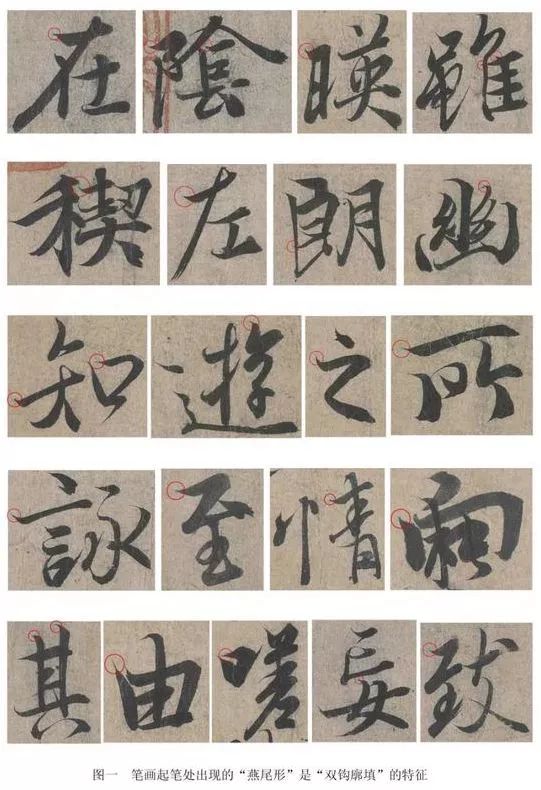 在 陰 暎 雖
稧 左 朗 幽
知 遊 之 所
詠 至 情 兩
其 由 嗟 妄 致
图一 笔画起笔处出现的“燕尾形”是“双钩廓填”的特征